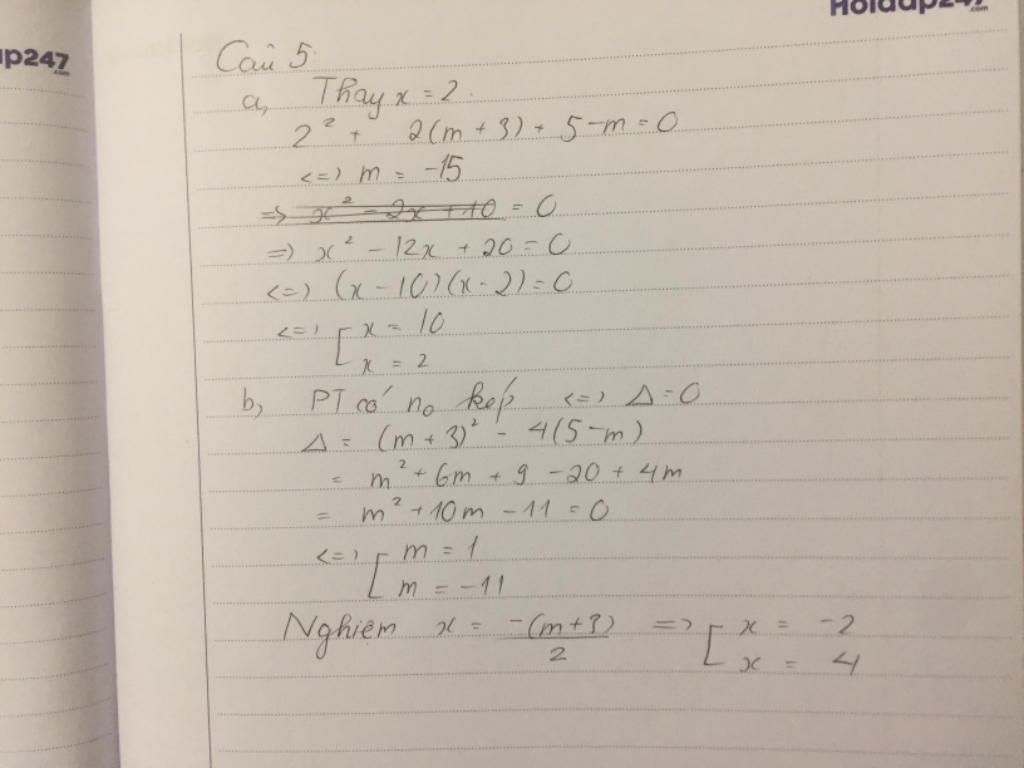 Hoidap247
.com
ap247
.com
Câu 5
a, Thay x = 2.
2² + 2(m + 3) + 5 - m = 0
<=> m = -15
=> x² - 2x + 10 = 0
=> x² - 12x + 20 = 0
<=> (x - 10)(x - 2) = 0
<=> [ x = 10
x = 2
b, PT có no kép <=> Δ = 0
Δ = (m + 3)² - 4(5 - m)
= m² + 6m + 9 - 20 + 4m
= m² + 10m - 11 = 0
<=> [ m = 1
m = -11
Nghiệm x = -(m+3)/2 => [ x = -2
x = 4